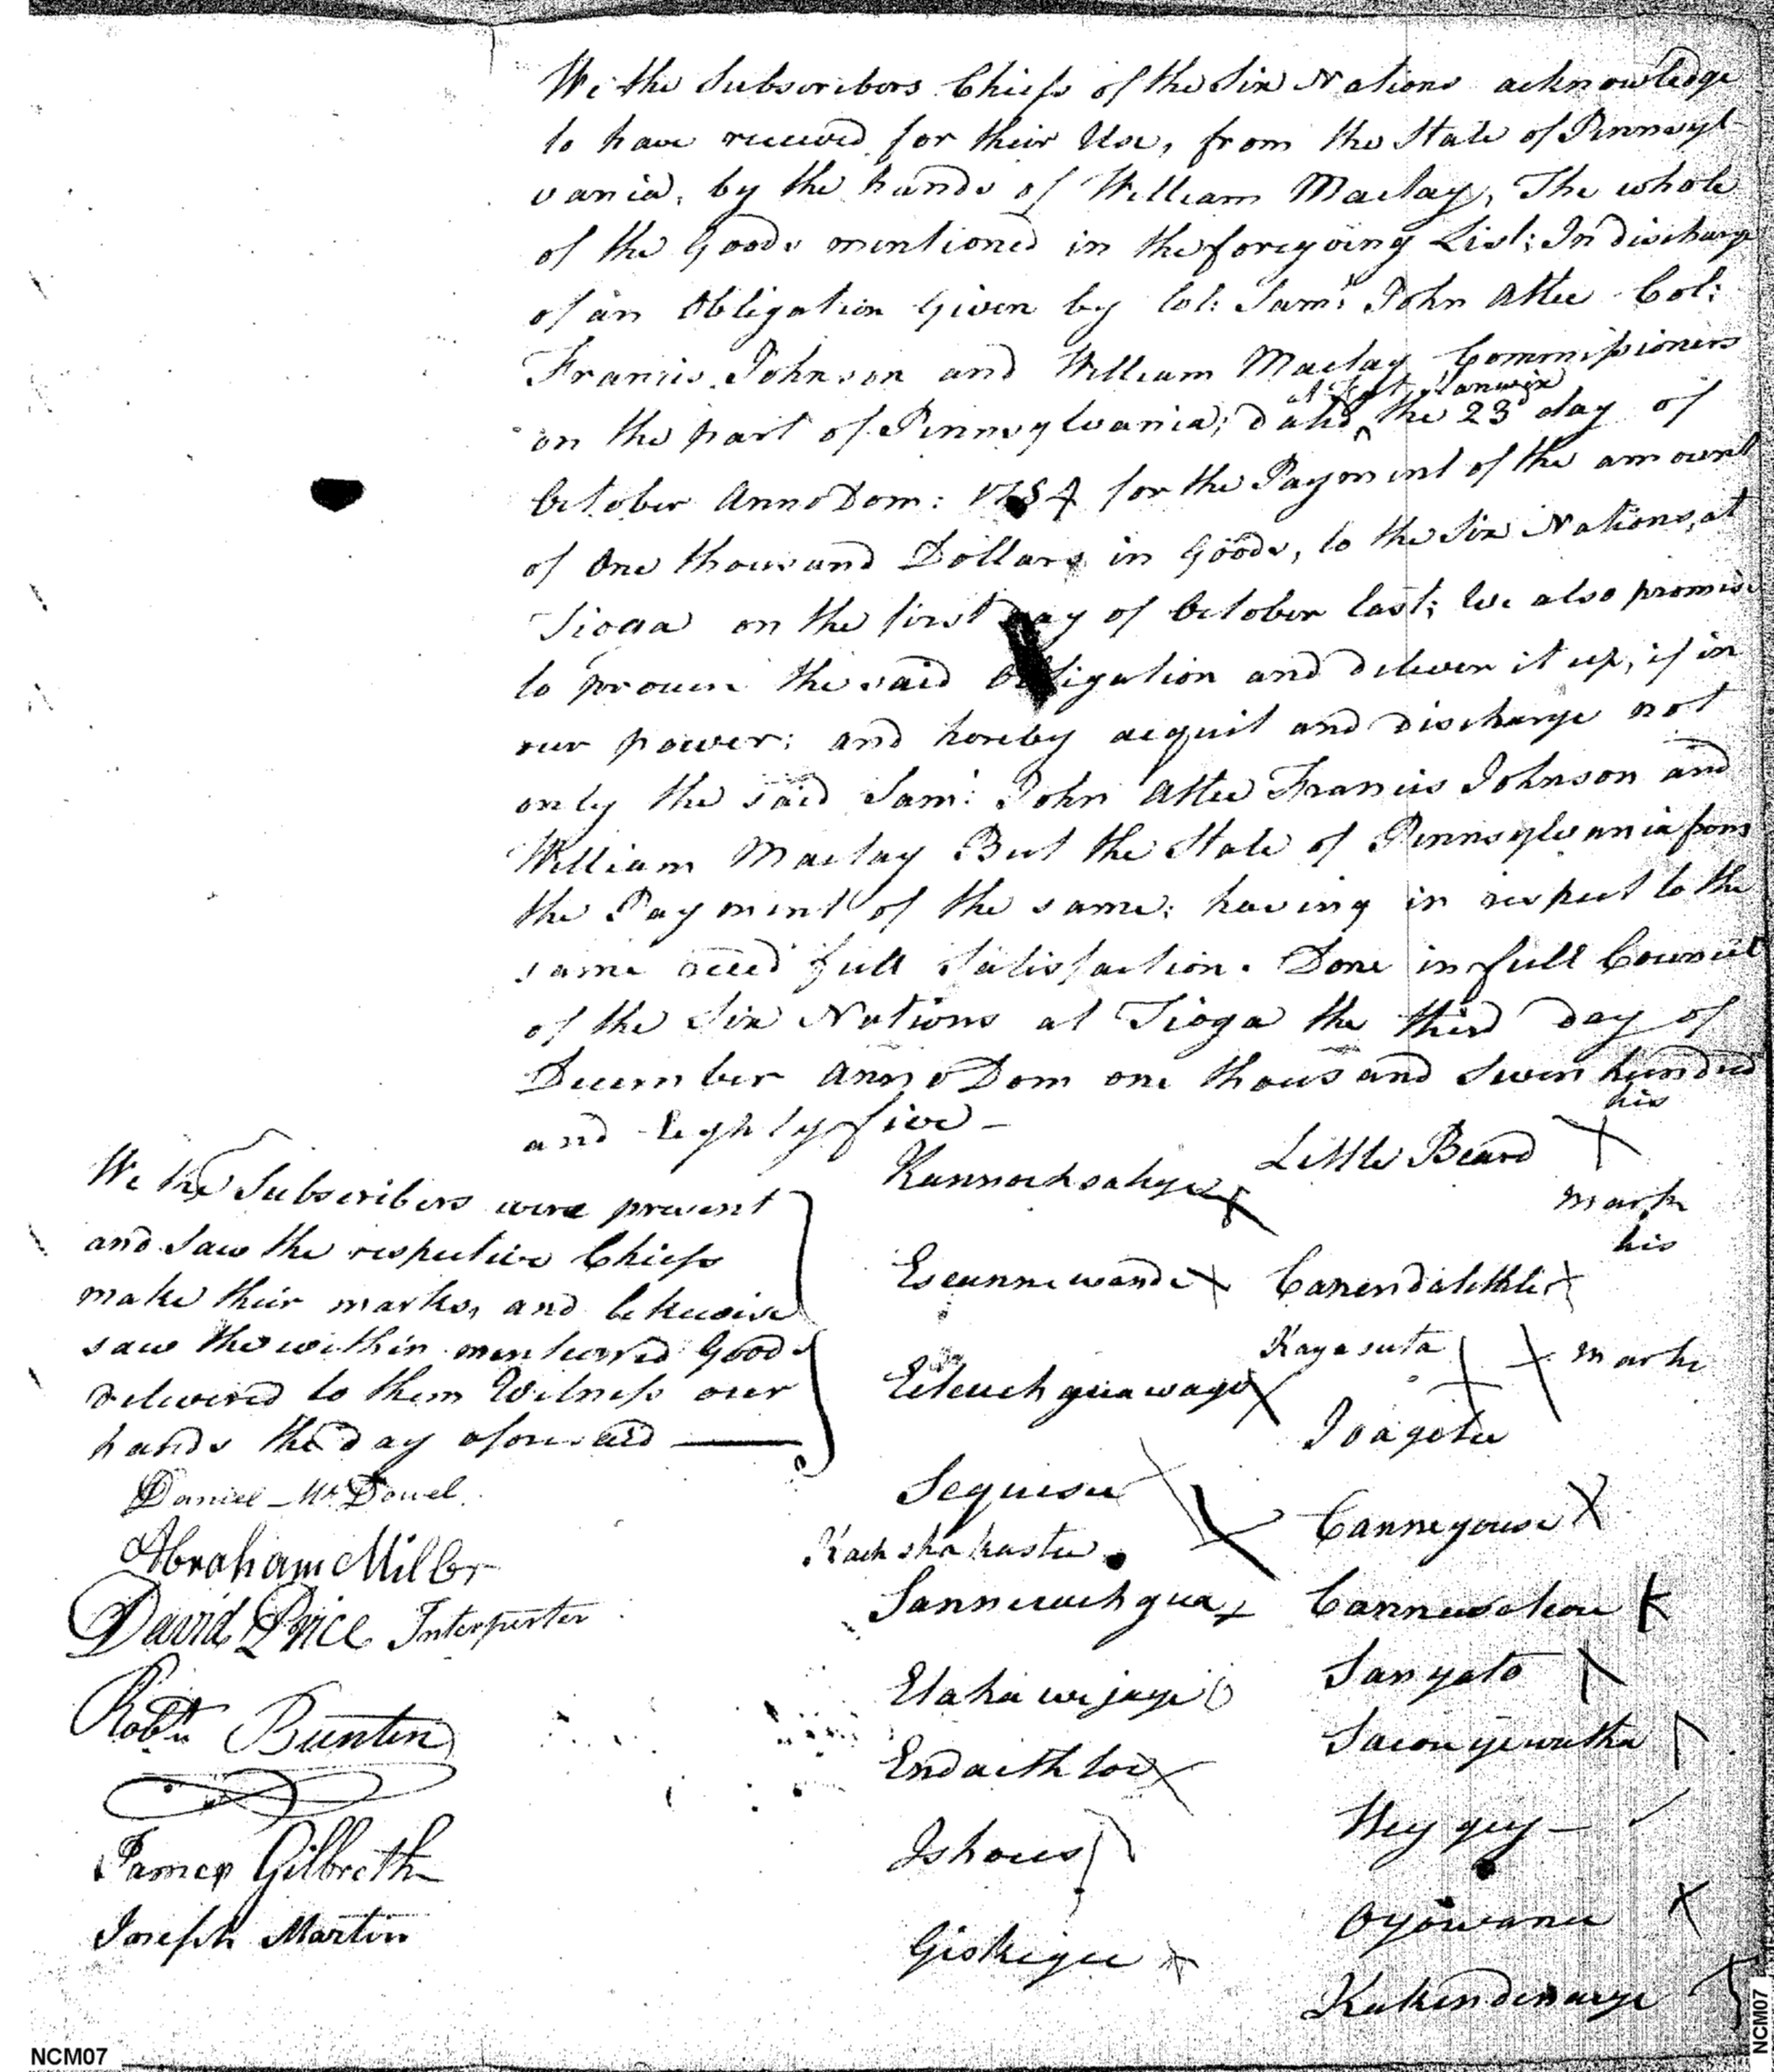 We the Subscribers Chiefs of the Six Nations acknowledge
to have received for their Use, from the State of Pennsyl-
vania, by the hands of William Maclay, The whole
of the Goods mentioned in the foregoing List; In discharge
of an Obligation Given by Col: Saml: John Atlee Col:
Francis Johnson and William Maclay Commissioners
at Fort Stanwix
on the part of Pennsylvania; dated the 23d day of
October Anno Dom: 1784 for the Payment of the amount
of One thousand Dollars in Goods, to the Six Nations, at
Tioga on the first day of October last; We also promise
to procure the said Obligation and deliver it up, if in
our power; and hereby acquit and discharge not
only the said Saml: John Atlee Francis Johnson and
William Maclay But the State of Pennsylvania from
the Payment of the same; having in respect to the
same recd full Satisfaction. Done in full Council
of the Six Nations at Tioga the third day of
December Anno Dom one thousand Seven hundred
and Eighty five –
We the Subscribers were present
and Saw the respective Chiefs
make their marks, and likewise
saw the within mentioned Goods
delivered to them Witness our
hands the day aforesaid
Daniel McDowel
Abraham Miller
David Price Interperter
Robt Bunten
James Gilbreth
Joseph Martin
Kannochsahge X
Eseannewande X
Eileuchguawago X
Sequisu
Kachshakastu
Sannuuchgua X
Elahawejage O
Endaithloe X
Ishous
Giskegee X
his
Little Beard X
mark
his
Canendalithle X
Kayasuta X mark
Joagotu
Canneyouse X
Canneusekou
Sangoto
Saconyewatha
Hey gey –
Oyowanee X
Kakendenaye